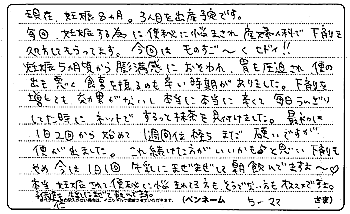 現在、妊娠8ヶ月。3人目を出産予定です。
毎回、妊娠する為に便秘に悩まされ産婦人科で下剤を
処方してもらってます。今回はものすご〜くヒドイ!!
妊娠5ヶ月頃から膨満感におそわれ、胃も圧迫され、便の
出も悪く食事を摂るのも辛い時期がありました。下剤を
増しても効果がないし本当に本当に辛くて毎日うんざり
してた時に、ネットでするっと抹茶を見付けました。最初は
1日2回から始めて1週間位経ちまだ硬いですが
便が出ました。これ続けた方がいいかもと思い下剤も
やめ今は1日1回牛乳にまぜまぜして朝飲んでますよ〜♡
本当妊娠されて便秘に悩まれてる方もそうでない方もオススメですよ。
(ペンネーム
さま)